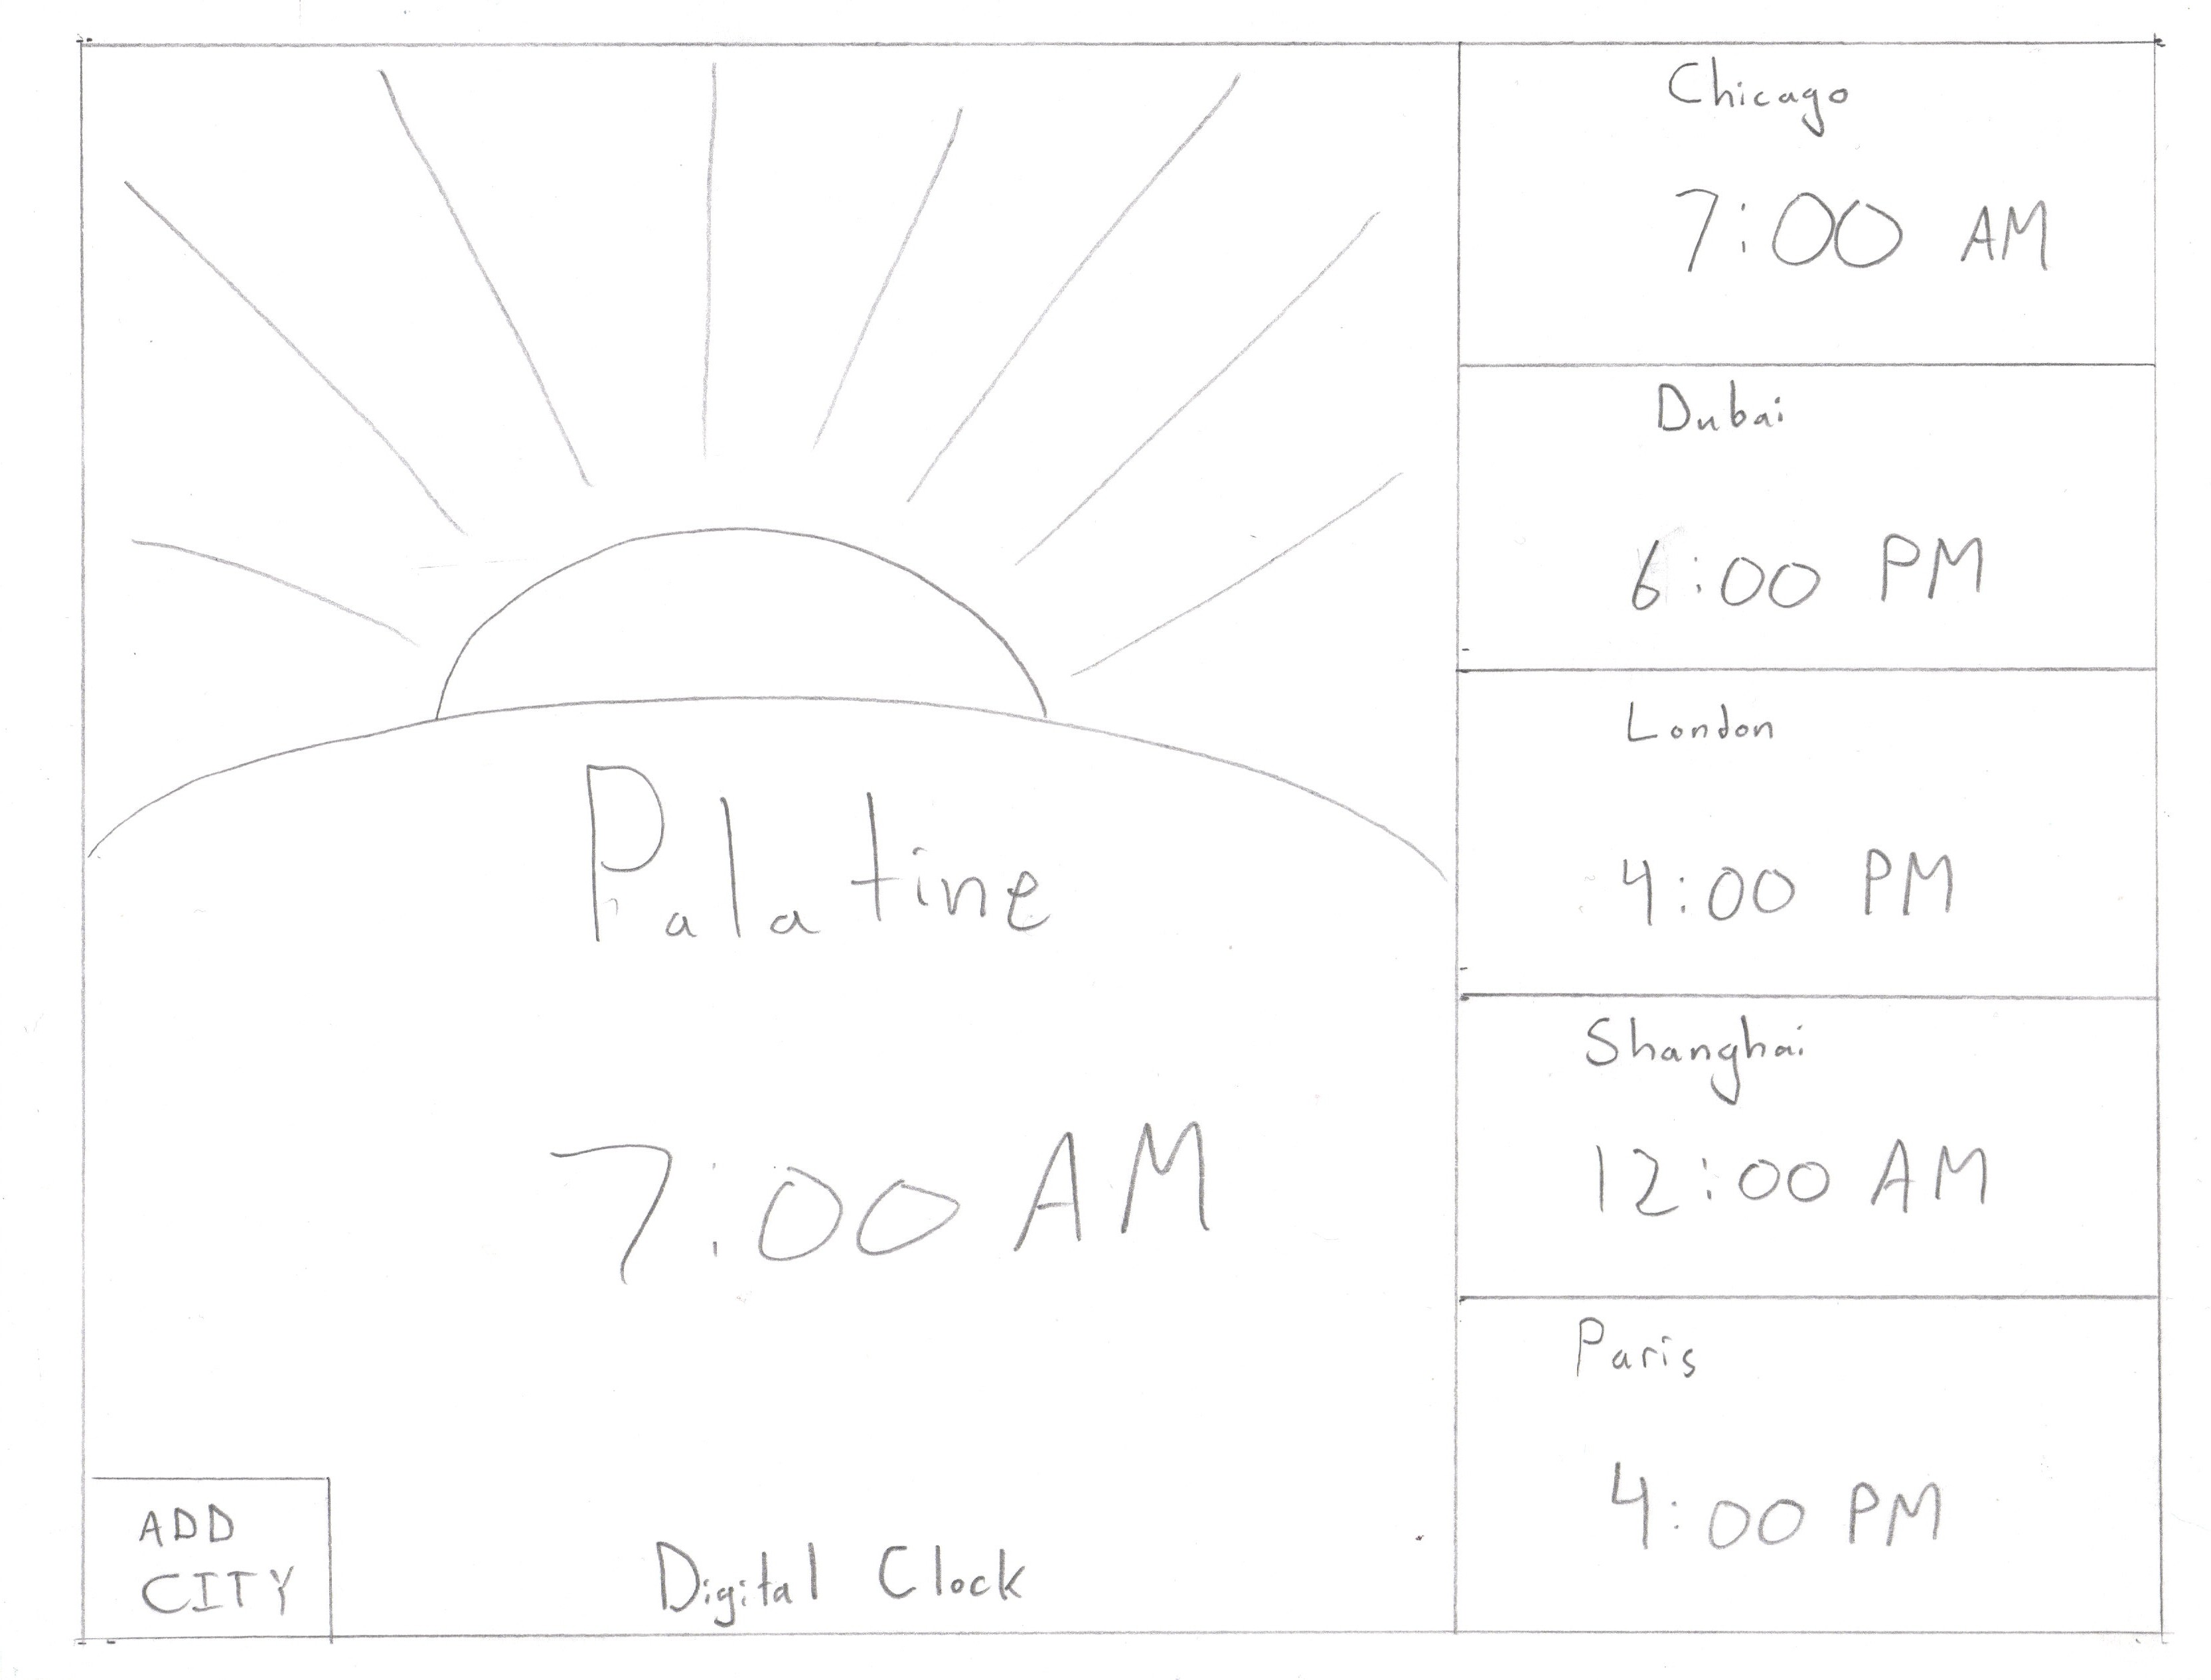 Palatine
7:00 AM
ADD
CITY
Digital Clock
Chicago
7:00 AM
Dubai
6:00 PM
London
4:00 PM
Shanghai
12:00 AM
Paris
4:00 PM